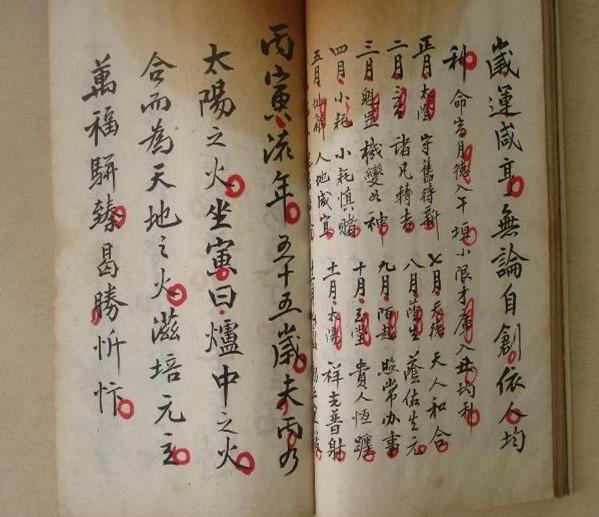 歲運咸亨無論自創依人均
利 命宮月德入午垣小限才庫入垂均利
正月太陰 守舊待新 七月天德 天人和合
二月 諸凡轉吉 八月蔭生 蔭佑生元
三月魁罡 機變如神 九月陌越 照常办事
四月小耗 小耗慎賭 十月玉堂 貴人恆躔
五月 解 人地咸宜 十一月太陽 祥光普射
丙寅流年五十五歲夫丙乃
太陽之火坐寅曰爐中之火
合而為天地之火滋培元主
萬福駢臻曷勝忻忭